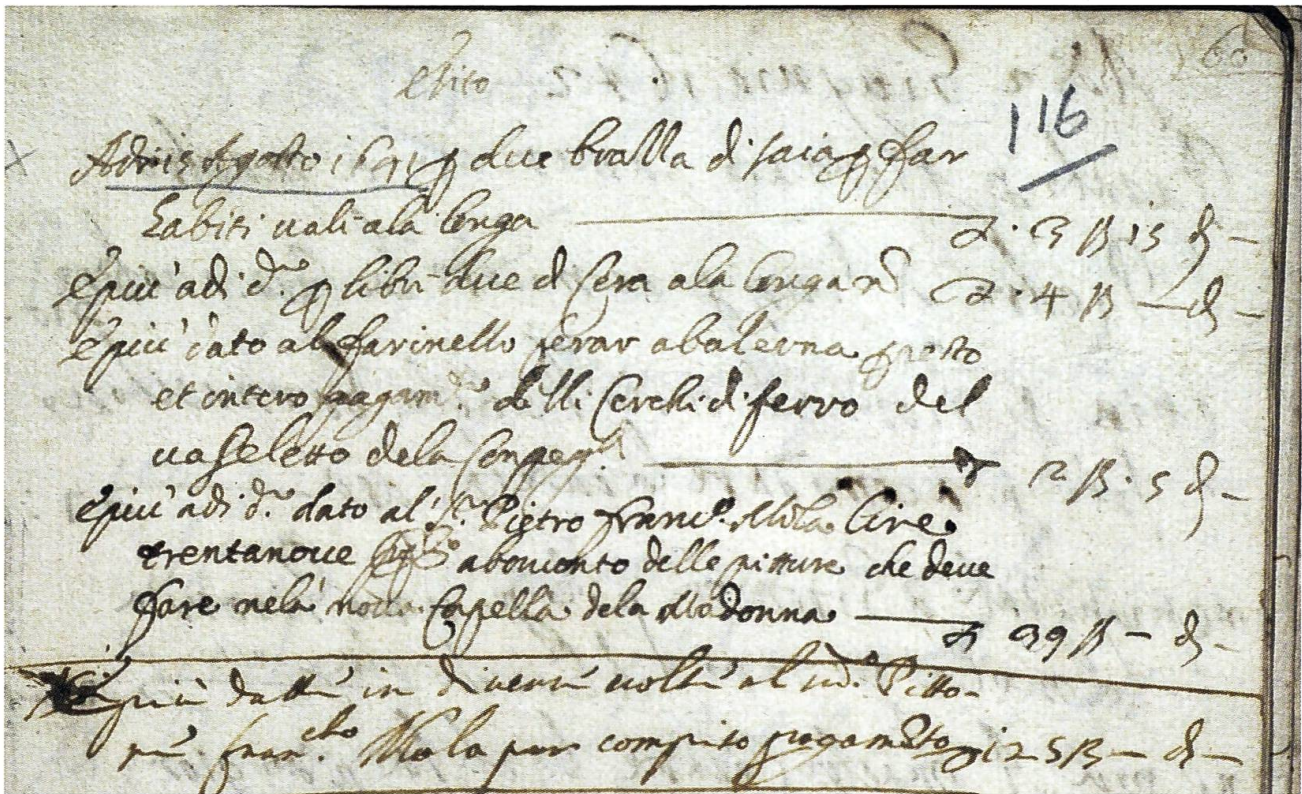 60
116
Adi 15 Agosto 1641 p due bralla di saia p far
habiti vali ala longa £. 3 ß 15 d –
E più adi d.º p libre due di Sera ala longa £. 4 ß – d –
E più dato al farinello ferar a balerna p resto
et intero pagam.to delli Cerchi di ferro del
vaseletto dela £ 12 ß. 5 d –
E più adi d.º dato al S.r Pietro Franc.º Mola lire
trentanove a bon conto delle pitture che deve
fare nela Capella dela Madonna £ 39 ß – d –
E più datti in diverse volte al sud.º Pitto-
re Fran.cho Mola per compito pagamēto £ 125 ß – d –